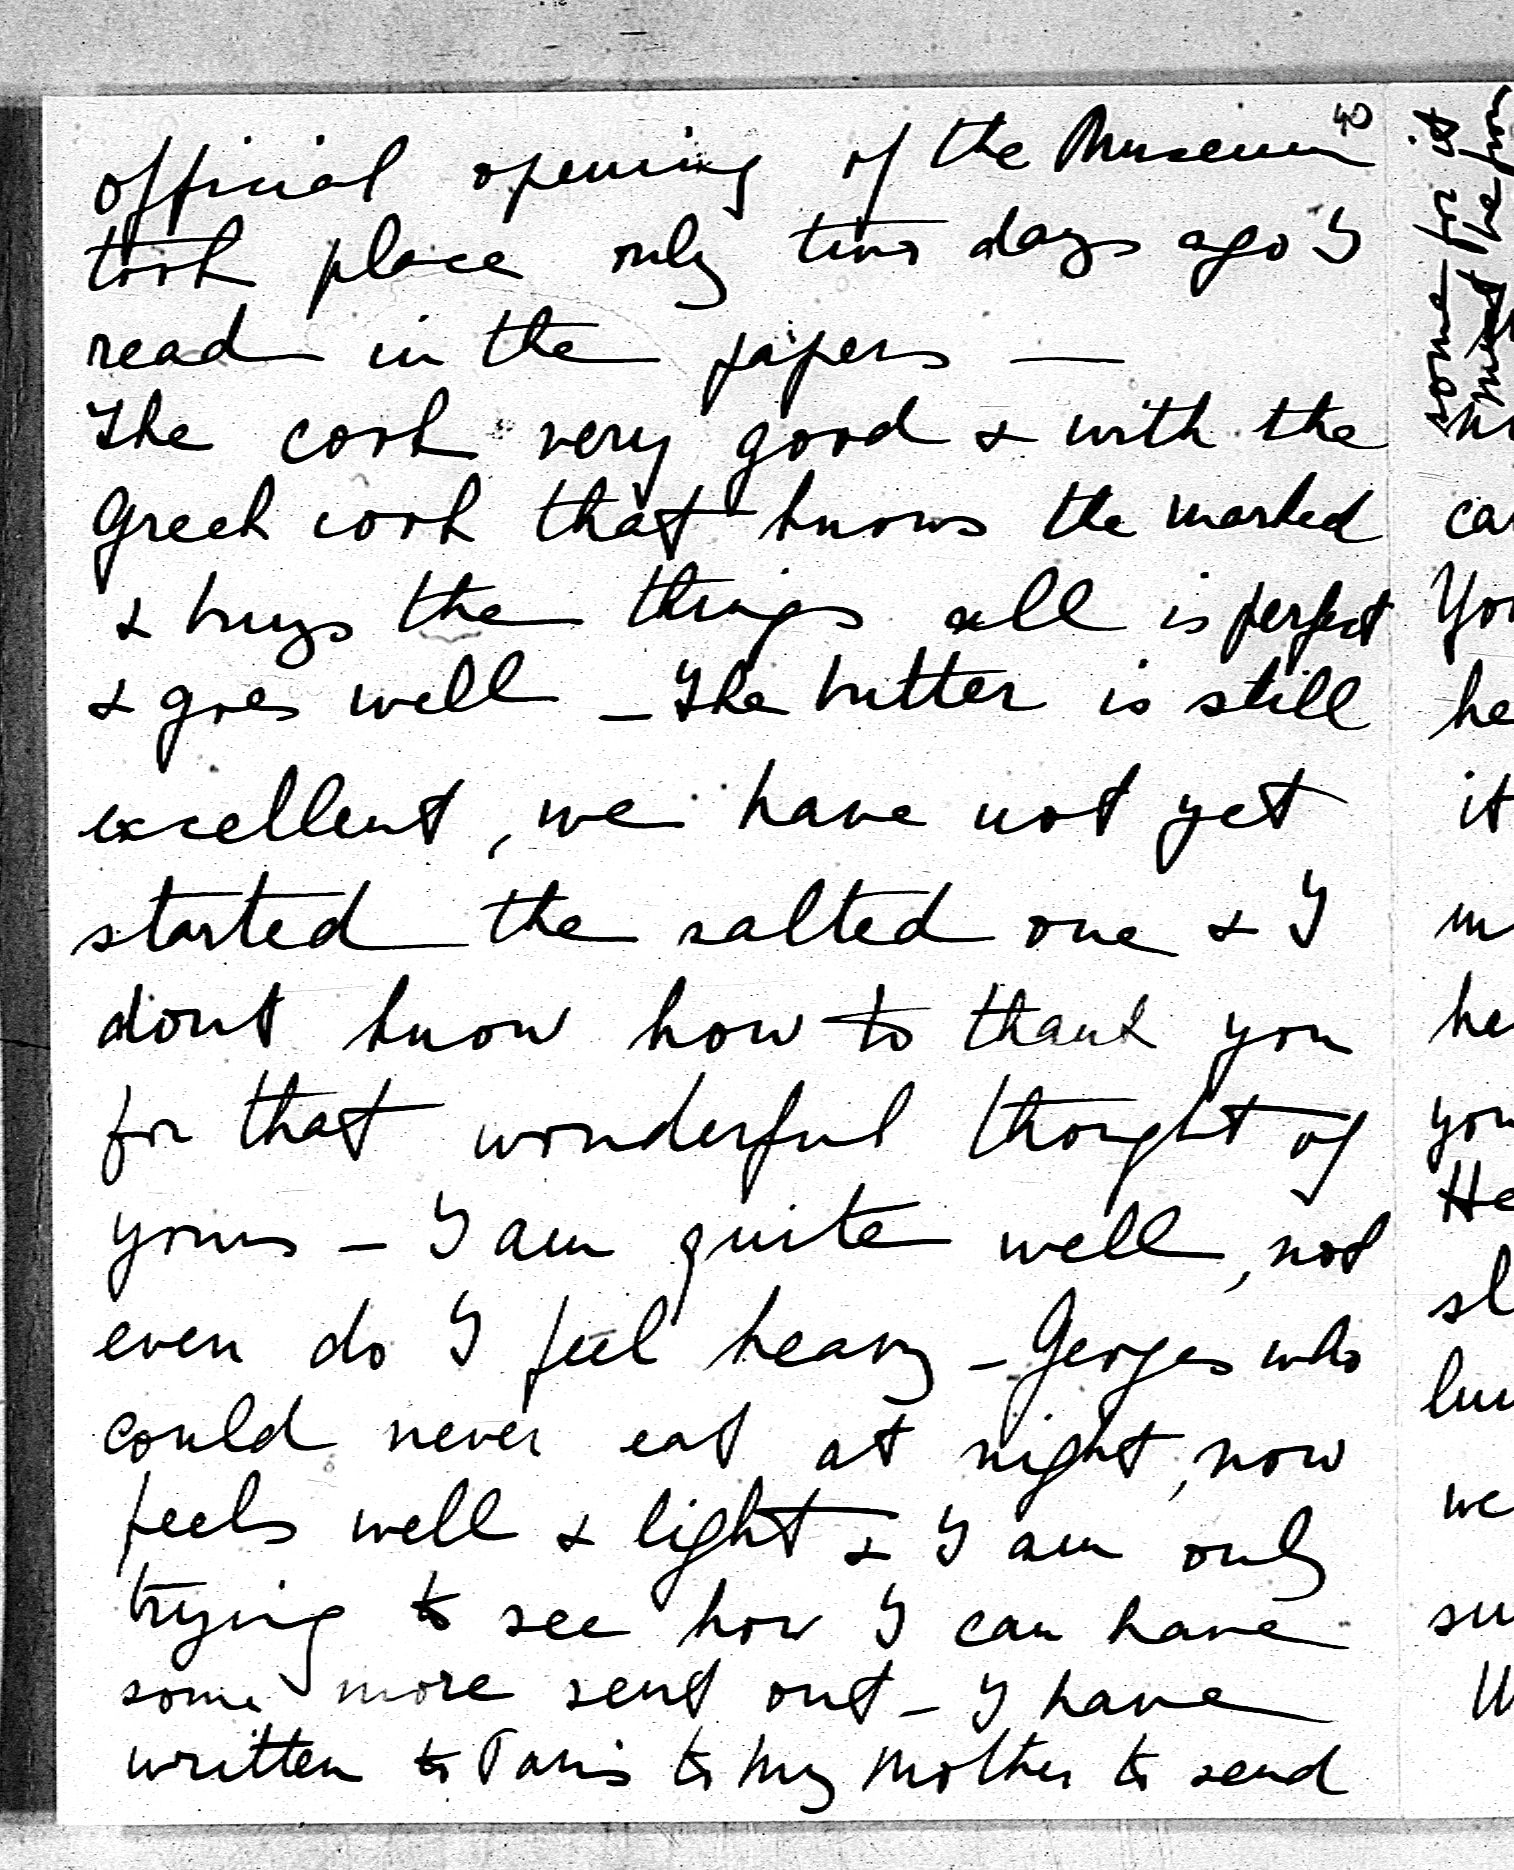 40
official opening of the Museum
took place only two days ago I
read in the papers —
The cook very good & with the
Greek cook that knows the marked
& buys the things all is perfect
& goes well – The butter is still
excellent, we have not yet
started the salted one & I
dont know how to thank you
for that wonderful thought of
yours – I am quite well, not
even do I feel heavy – Georges who
could never eat at night, now
feels well & light & I am only
trying to see how I can have
some more sent out – I have
written to Paris to my mother to send
some for it
must be from
ca
You
he
it
m
he
you
He
sl
lun
we
su